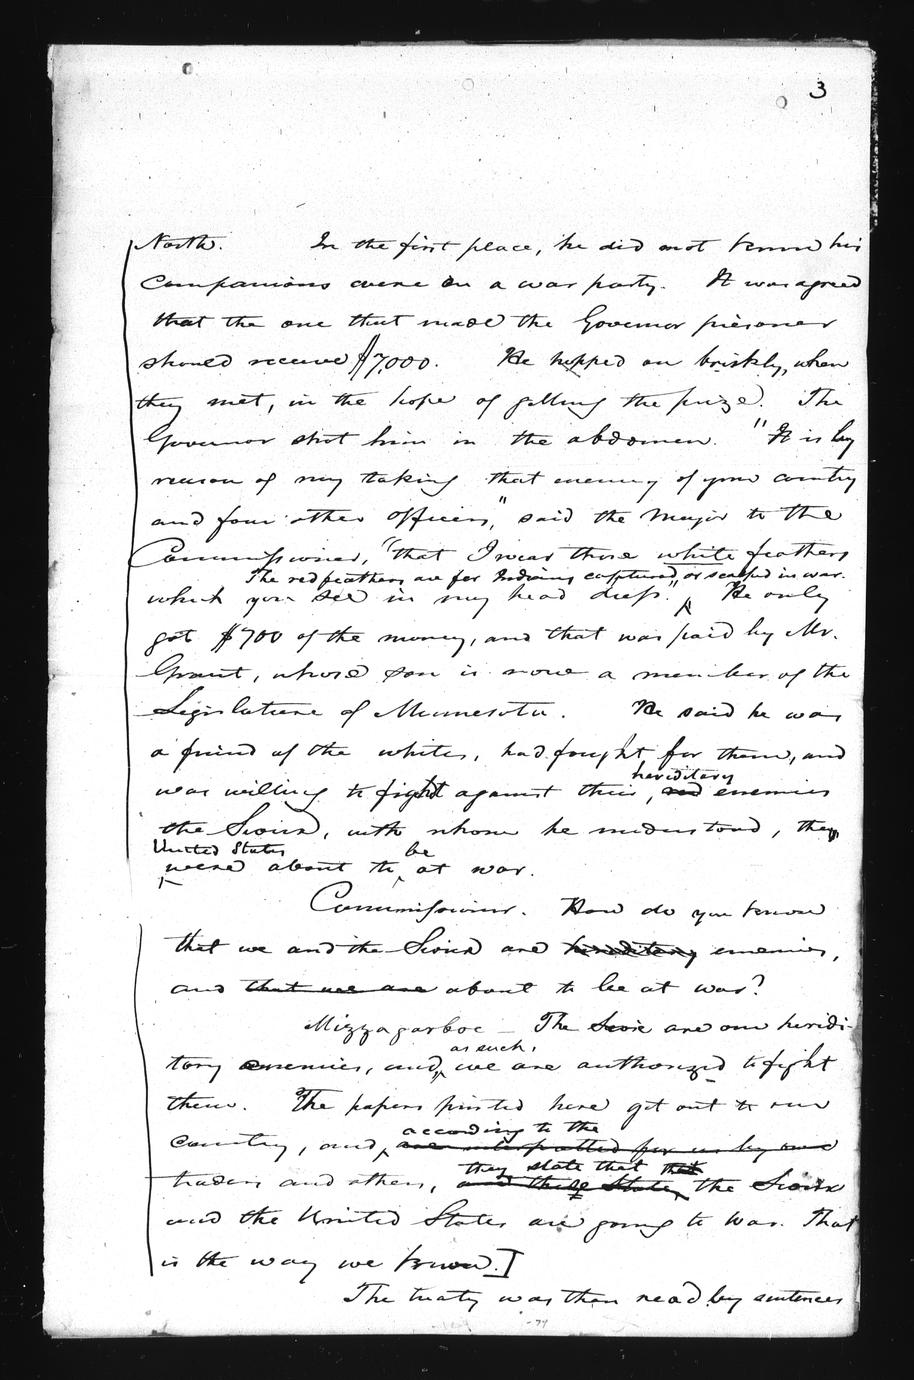 3
North. In the first place, he did not know his
companions were on a war party. It was agreed
that the one that made the Governor prisoner
should receive $7,000. He hopped on briskly, when
they met, in the hope of getting the prize. The
Governor shot him in the abdomen. "It is by
reason of my taking that enemy of your country
and four other officers," said the Major to the
Commissioner, "that I wear those white feathers
The red feathers are for Indians captured or scalped in war.
which you see in my head dress." He only
got $700 of the money, and that was paid by Mr.
Grant, whose son is now a member of the
Legislature of Minnesota. He said he was
a friend of the whites, had fought for them, and
hereditary
was willing to fight against their, red enemies
the Sioux, with whom he understood, they
United States be
were about to at war.
Commissioner. How do you know
that we and the Sioux are hereditary enemies,
and that we are about to be at war?
Mizzagarboc — The Sioux are our heridi-
as such,
tory enemies, and, we are authorized to fight
them. The papers printed here get out to our
according to the
country, and, are interpretted for us by our
they state that that
traders and others, and these state, the Sioux
and the United States are going to war. That
is the way we know.]
The treaty was then read by sentences